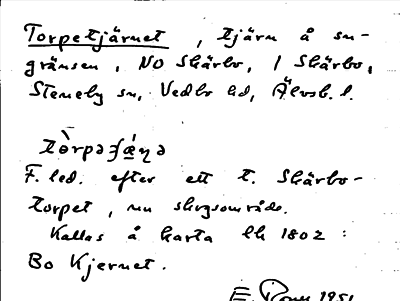 Torpetjärnet, tjärn å sn-
gränsen, NO Skärbo, i Skärbo,
Steneby sn, Vedbo hd, Älvsb. l.
F. led. efter ett t. Skärbo-
torpet, nu skogsområde.
Kallas å karta LK 1802:
Bo Kjernet.
1951